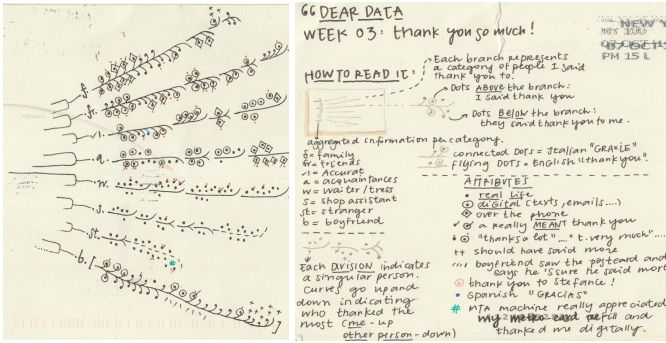 f.
fr.
a.
w.
s.
st.
b.
#
66 DEAR DATA
WEEK 03: thank you so much!
NEW Y
PM 15 L
HOW TO READ IT:
Each branch represents
a category of people I said
thank you to.
Dots ABOVE the branch:
I said thank you
Dots BELOW the branch:
they said thank you to me.
aggregated information per category.
f = family
fr = friends
= Accurat
a = acquaintances
w = waiter / tress
s = shop assistant
st = stranger
b = boyfriend
connected DOTS = Italian "GRAZIE"
flying DOTS = English "thank you".
Each DIVISION indicates
a singular person.
Curves go up and
down indicating
who thanked the
most (me - up
other person - down)
ATTRIBUTES
real life
digital (texts, emails....)
over the phone
a really MEANT thank you
"thanks a lot"_"t. very much"...
++ should have said more
boyfriend saw the postcard and
says he's sure he said more
thank you to Stefanie!
Spanish "GRACIAS"
# MTA machine really appreciated
my metro card refill and
thanked me digitally.